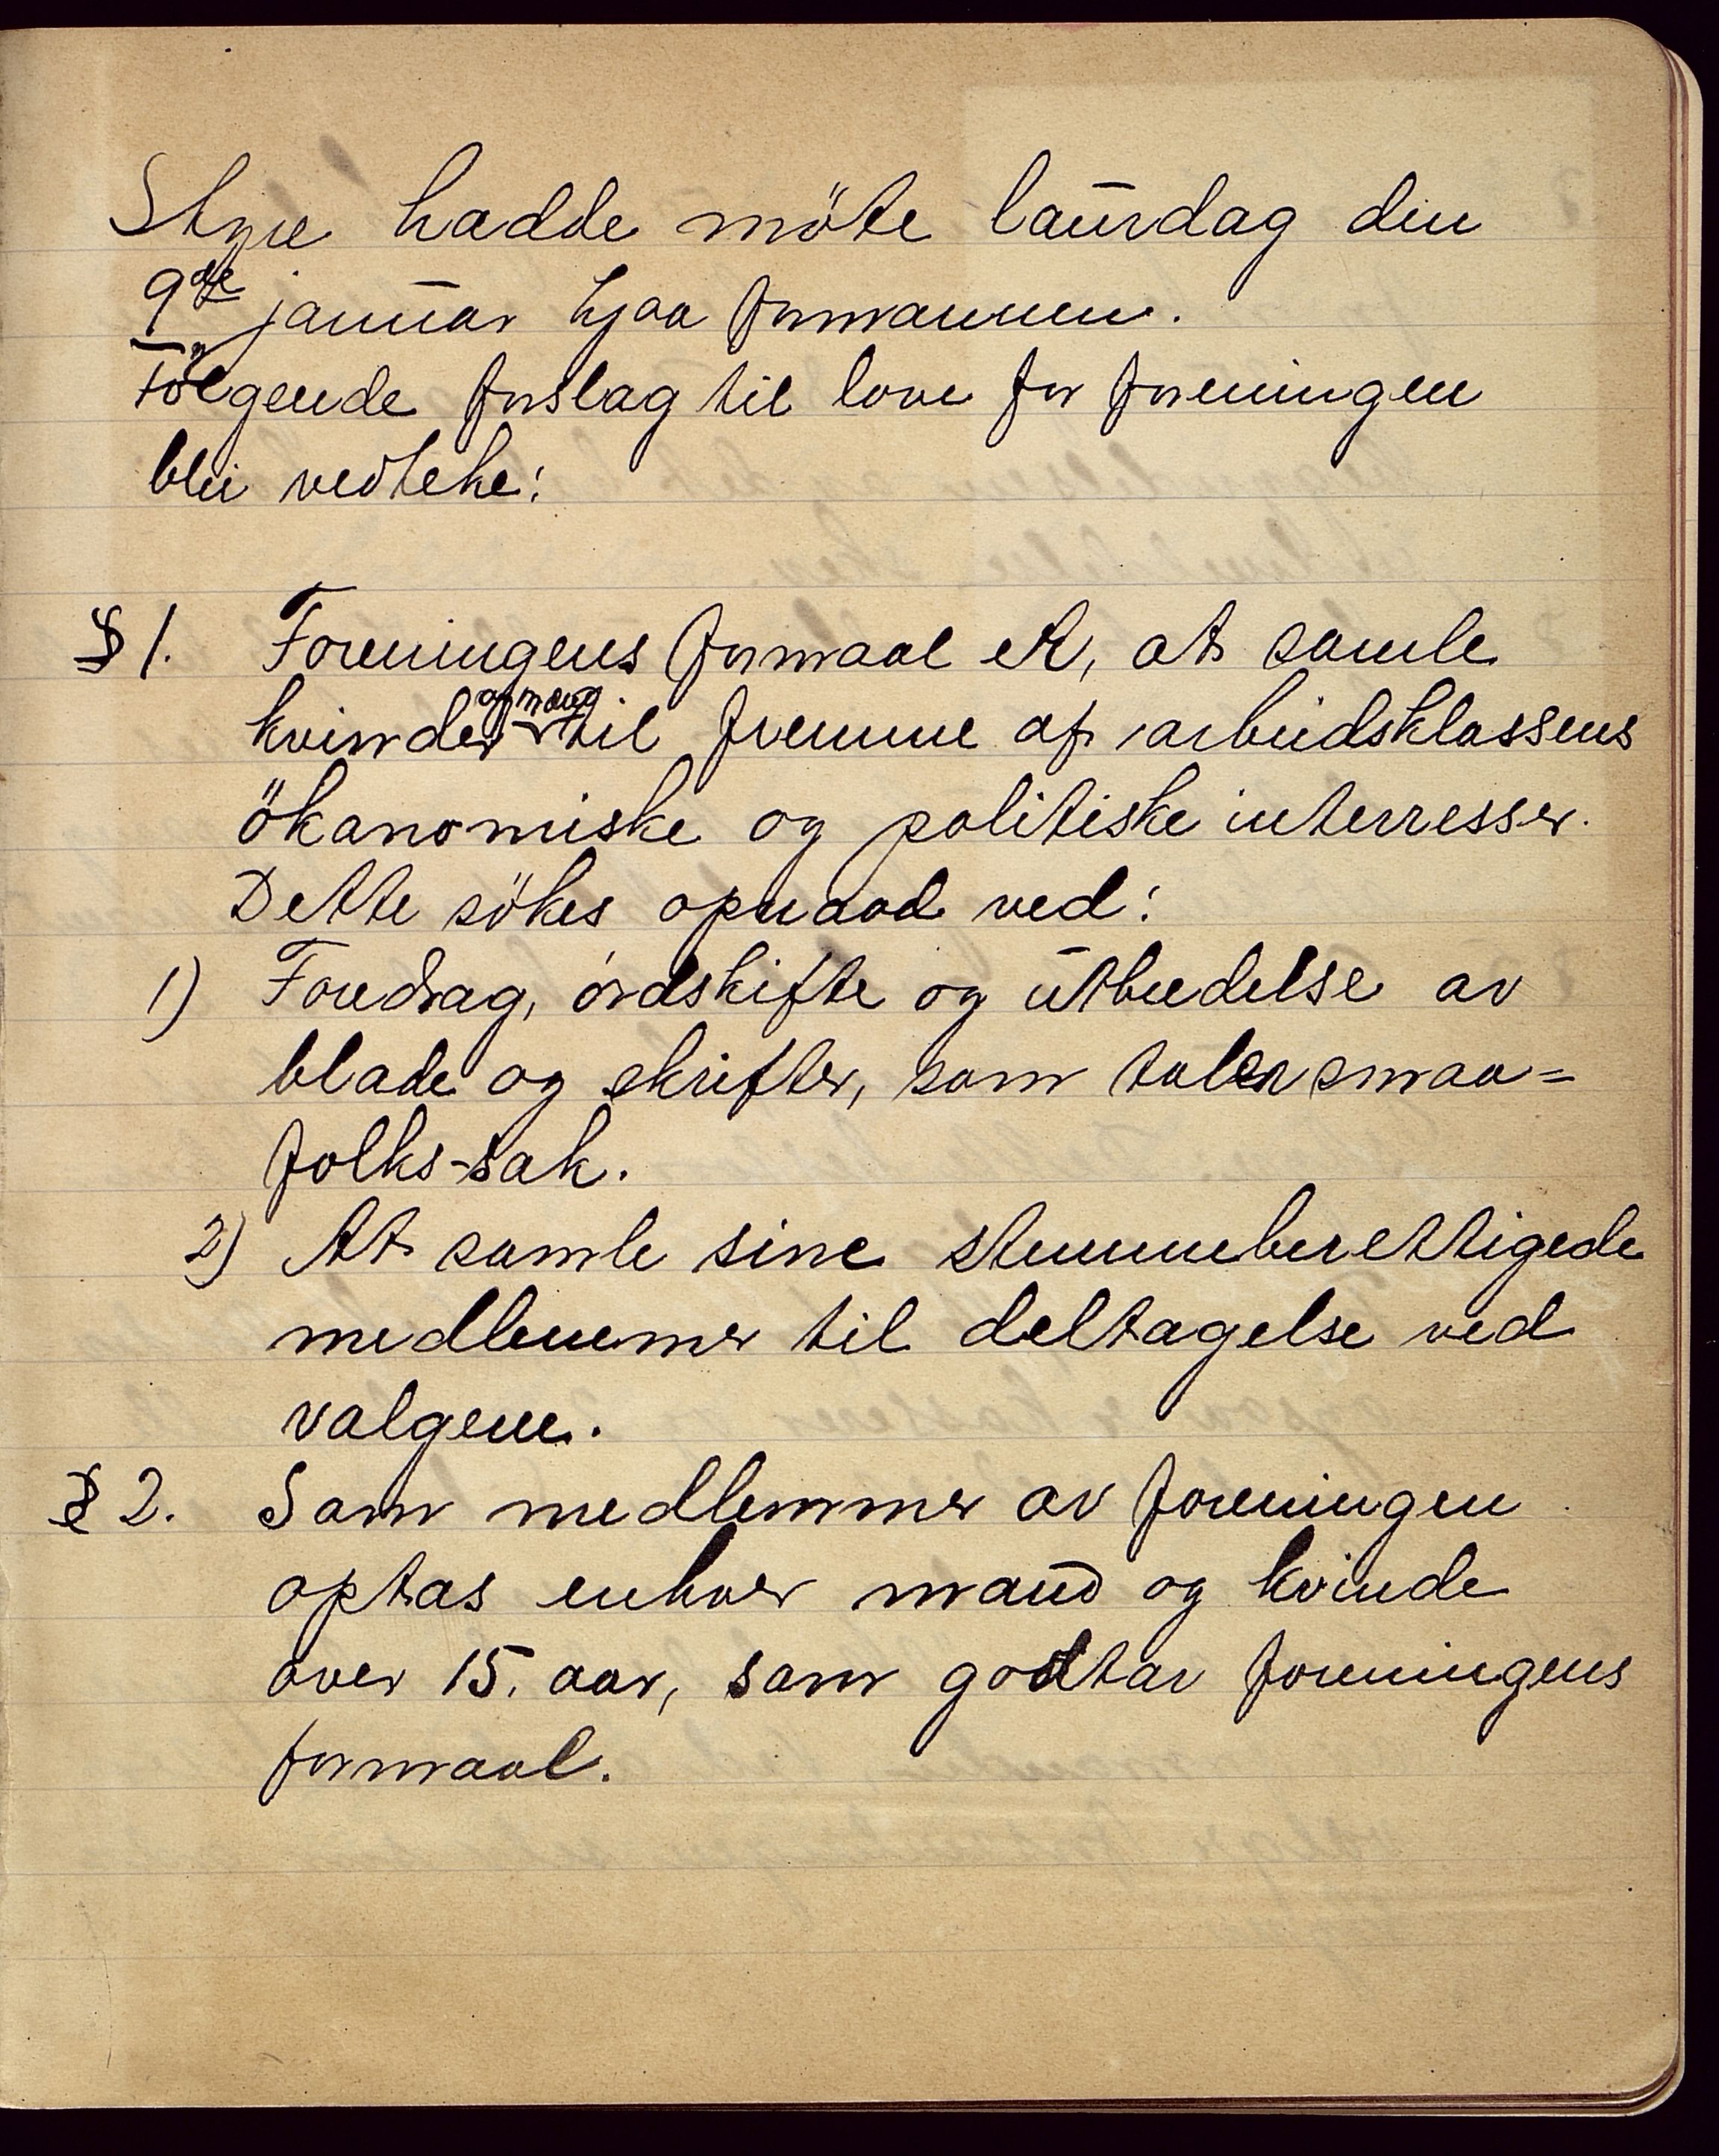 Styre hadde möte laurdag den
9de januar hjaa formannen.
Følgende forslag til love for foreningen
blei vedteke:
§ 1. Foreningens formaal er, at samle
kvinder og mænd til fremme af arbeidsklassens
ökonomiske og politiske interresser.
Dette sökes opnaad ved:
1) Foredrag, ordskifte og utbredelse av
blade og skrifter, som taler smaa=
folks-sak.
2) At samle sine stemmeberettigede
medlemmer til deltagelse ved
valgene.
§ 2. Som medlemmer av foreningen
optas enhver mand og kvinde
over 15. aar, som godtar foreningens
formaal.